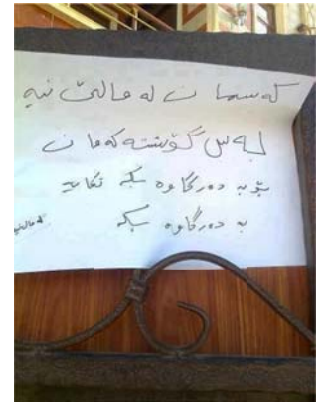 كەسمان لە مالێ نیە
گۆشتەكەمان
بۆ بە دەرگاوە بكە تكایە
بە دەرگاوە بكە